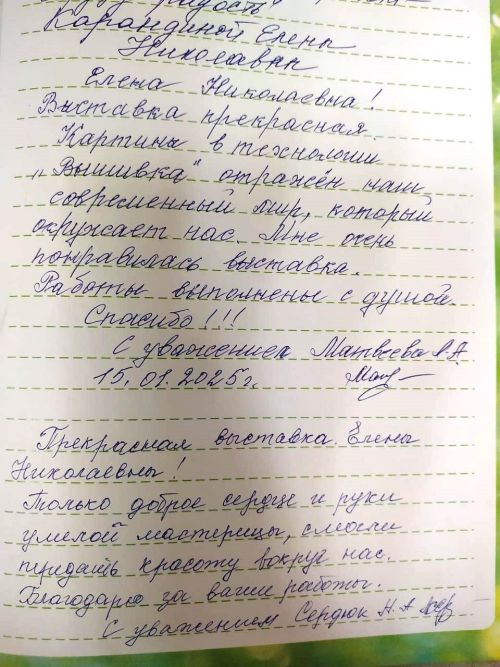 радость
Карандиной Елены
Николаевны
Елена Николаевна!
Выставка прекрасная.
Картины в технологии
„Вышивка" отражён наш
современный мир, который
окружает нас. Мне очень
понравилась выставка.
Работы выполнены с душой.
Спасибо!!!
С уважением Матвеева Л.А.
15.01.2025г.
Прекрасная выставка Елены
Николаевны!
Только доброе сердце и руки
умелой мастерицы, смогли
передать красоту вокруг нас.
Благодарю за ваши работы.
С уважением Сердюк Н.А